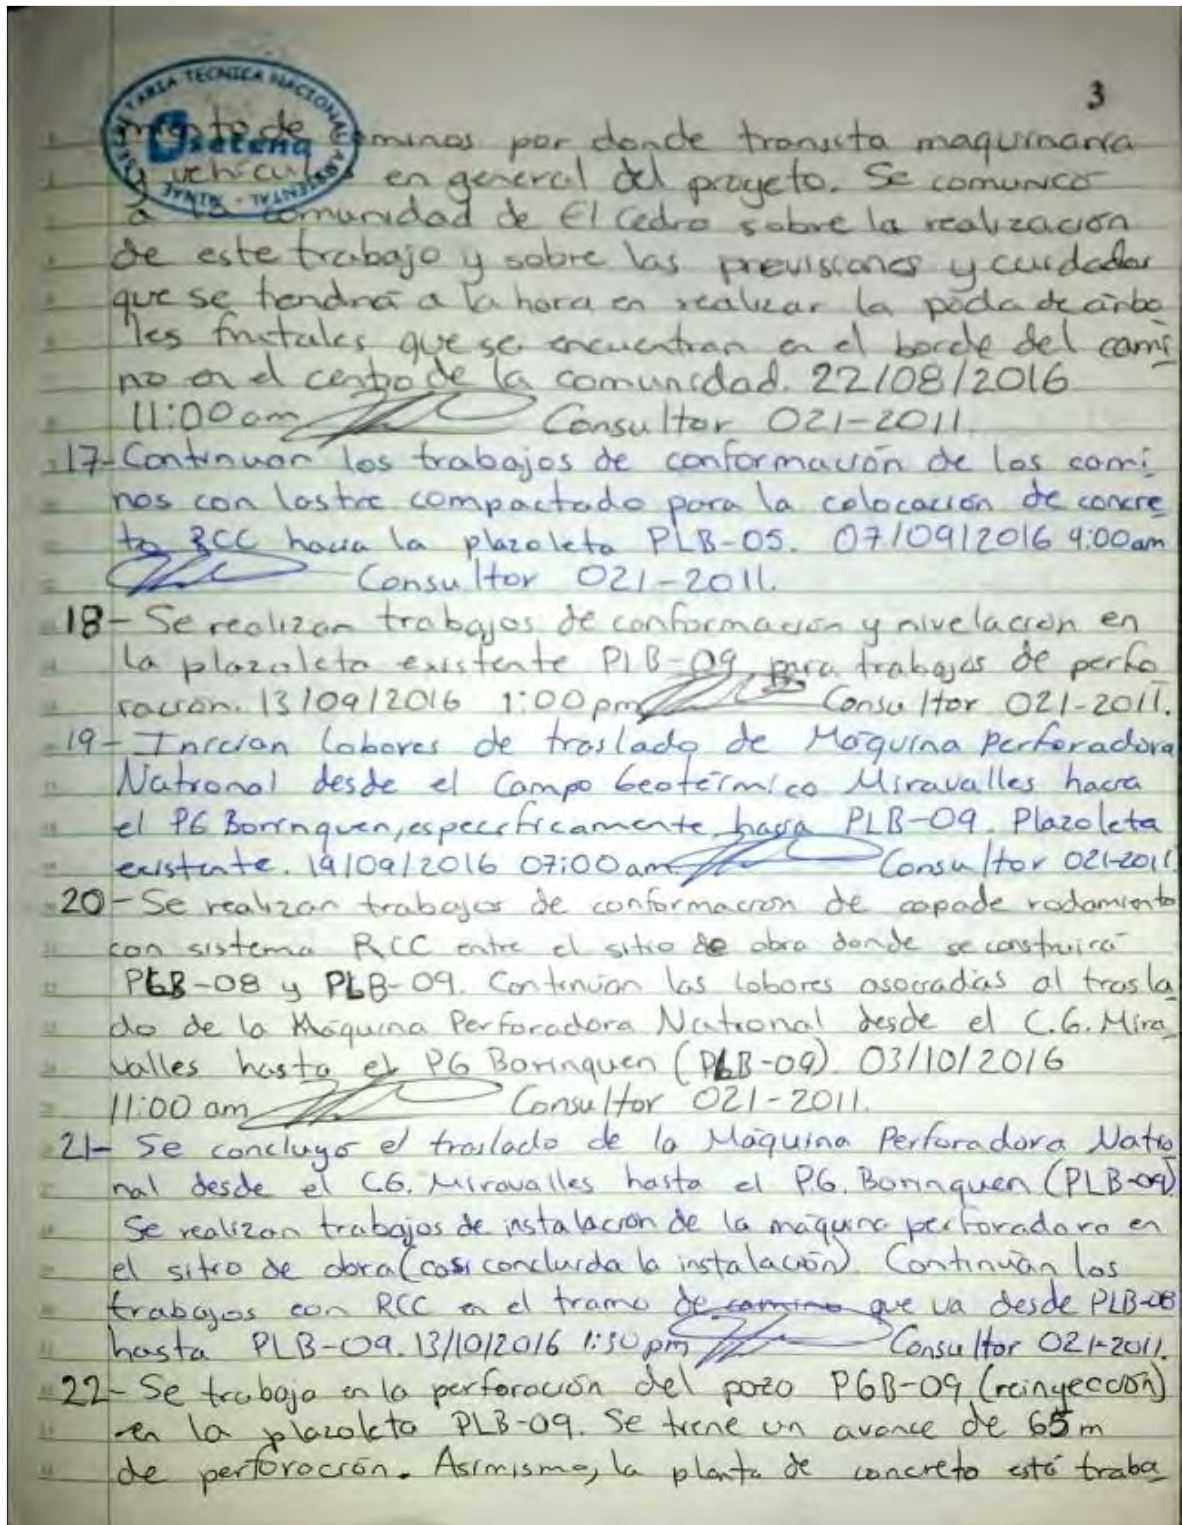 3
SECRETARIA TECNICA NACIONAL AMBIENTAL - MINAE
setena
miento de caminos por donde transita maquinaria
y vehículos en general del proyecto. Se comunicó
a la comunidad de El Cedro sobre la realización
de este trabajo y sobre las previsiones y cuidados
que se tendrá a la hora en realizar la poda de árbo
les frutales que se encuentran en el borde del cami
no en el centro de la comunidad. 22/08/2016
11:00 am Consultor 021-2011.
17- Continuan los trabajos de conformación de los cami
nos con lastre compactado para la colocación de concre
to RCC hacia la plazoleta PLB-05. 07/09/2016 9:00am
Consultor 021-2011.
18- Se realizan trabajos de conformación y nivelación en
la plazoleta existente PLB-09 para trabajos de perfo
ración. 13/09/2016 1:00 pm Consultor 021-2011.
19- Inician labores de traslado de Máquina Perforadora
National desde el Campo Geotérmico Miravalles hacia
el PG Borinquen, específicamente hacia PLB-09. Plazoleta
existente. 19/09/2016 07:00 am Consultor 021-2011
20- Se realizan trabajos de conformación de capa de rodamiento
con sistema RCC entre el sitio de obra donde se construirá
PLB-08 y PLB-09. Continúan las labores asociadas al trasla
do de la Máquina Perforadora National desde el C.G. Mira
valles hasta el PG Borinquen (PLB-09). 03/10/2016
11:00 am Consultor 021-2011.
21- Se concluyó el traslado de la Máquina Perforadora Natio
nal desde el C.G. Miravalles hasta el P.G. Borinquen (PLB-09)
Se realizan trabajos de instalación de la máquina perforadora en
el sitio de obra (casi concluida la instalación). Continúan los
trabajos con RCC en el tramo de camino que va desde PLB-08
hasta PLB-09. 13/10/2016 1:30 pm Consultor 021-2011.
22- Se trabaja en la perforación del pozo PGB-09 (reinyección)
en la plazoleta PLB-09. Se tiene un avance de 65 m
de perforación. Asimismo, la planta de concreto está traba